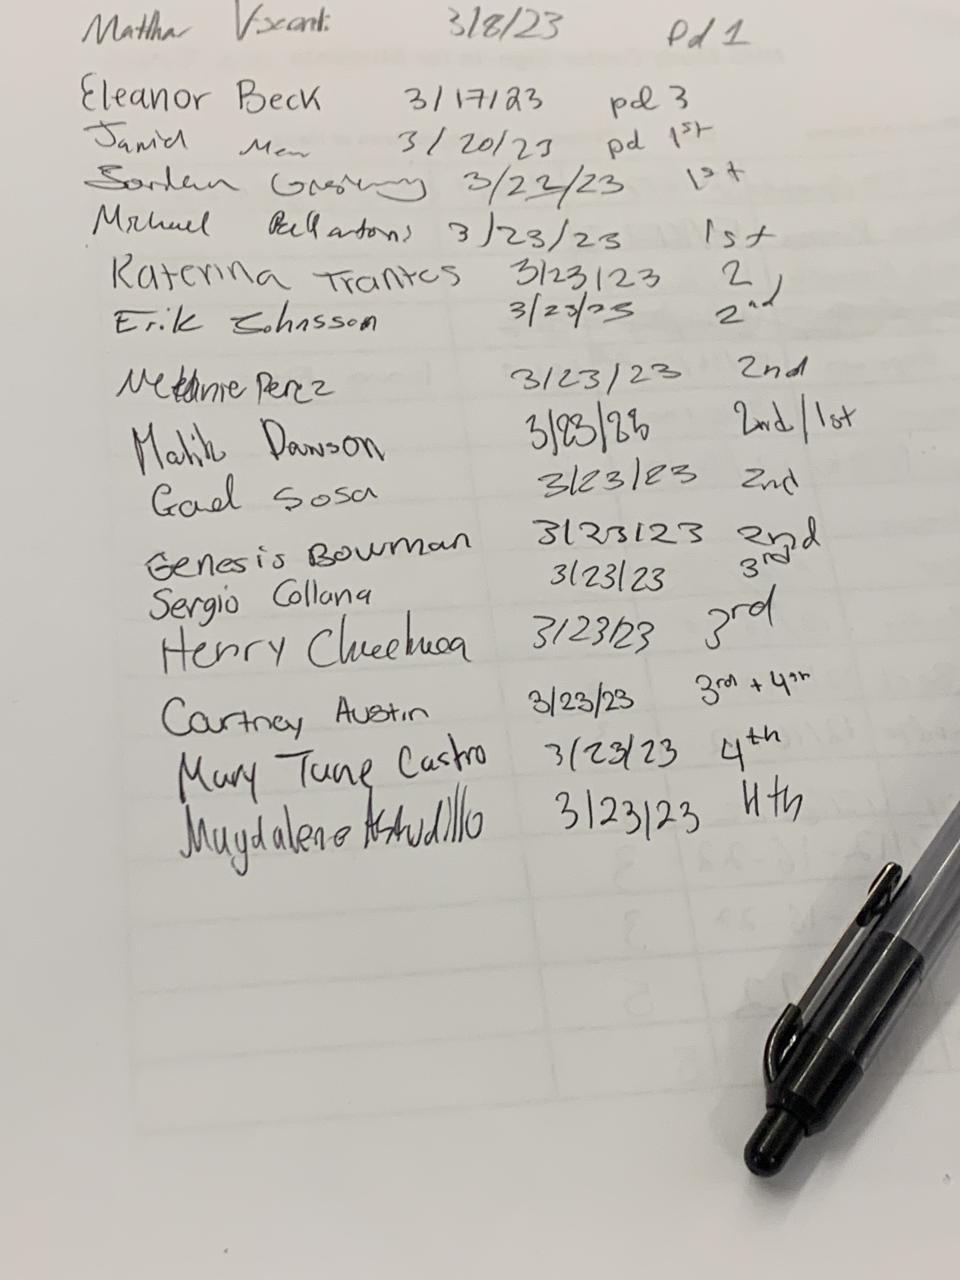 Matthew Visconti 3/8/23 Pd 1
Eleanor Beck 3/17/23 pd 3
3/20/23 pd 1st
3/22/23 1st
Michael 3/23/23 1st
Katerina Trantos 3/23/23 2
Erik Johnsson 3/23/23 2nd
Perez 3/23/23 2nd
Malik Dawson 3/23/23 2nd/1st
Gael Sosa 3/23/23 2nd
Genesis Bowman 3/23/23 2nd
Sergio Collana 3/23/23 3rd
Henry 3/23/23 3rd
Courtney Austin 3/23/23 3rd + 4th
Mary Tung Castro 3/23/23 4th
Magdalene Astudillo 3/23/23 4th